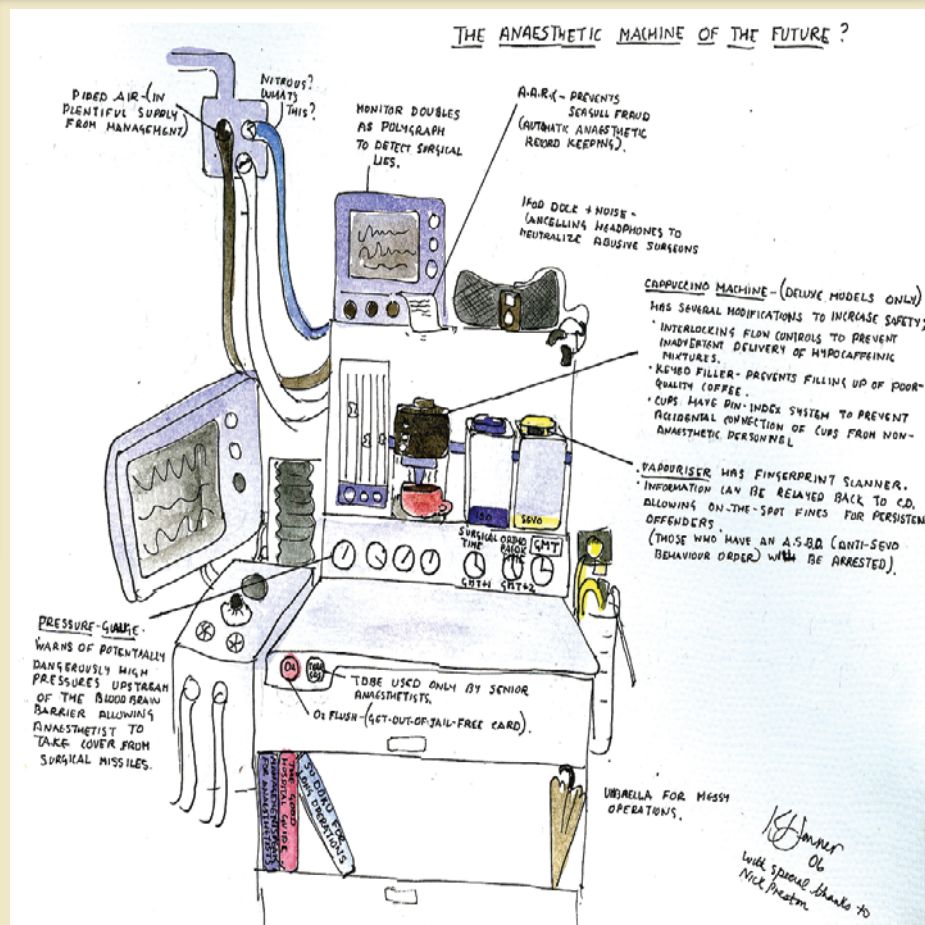 THE ANAESTHETIC MACHINE OF THE FUTURE?
PIPED AIR-(IN
PLENTIFUL SUPPLY
FROM MANAGEMENT)
NITROUS?
WHATS
THIS?
MONITOR DOUBLES
AS POLYGRAPH
TO DETECT SURGICAL
LIES.
A.A.R.K- PREVENTS
SEAGULL FRAUD
(AUTOMATIC ANAESTHETIC
RECORD KEEPING).
IPOD DOCK + NOISE-
CANCELLING HEADPHONES TO
NEUTRALIZE ABUSIVE SURGEONS
CAPPUCCINO MACHINE-(DELUXE MODELS ONLY)
HAS SEVERAL MODIFICATIONS TO INCREASE SAFETY;
• INTERLOCKING FLOW CONTROLS TO PREVENT
INADVERTENT DELIVERY OF HYPOCAFFEINIC
MIXTURES.
• KEYED FILLER- PREVENTS FILLING UP OF POOR-
QUALITY COFFEE.
• CUPS HAVE PIN-INDEX SYSTEM TO PREVENT
ACCIDENTAL CONNECTION OF CUPS FROM NON-
ANAESTHETIC PERSONNEL
• VAPOURISER HAS FINGERPRINT SCANNER.
• INFORMATION CAN BE RELAYED BACK TO C.D.
ALLOWING ON-THE-SPOT FINES FOR PERSISTEN
OFFENDERS.
(THOSE WHO HAVE AN A.S.B.O (ANTI-SEVO
BEHAVIOUR ORDER) WILL BE ARRESTED).
ISO
SEVO
SURGICAL
TIME
GMT
GMT+1
GMT+2
PRESSURE-GAUGE-
WARNS OF POTENTIALLY
DANGEROUSLY HIGH
PRESSURES UPSTREAM
OF THE BLOOD BRAIN
BARRIER ALLOWING
ANAESTHETIST TO
TAKE COVER FROM
SURGICAL MISSILES.
O2
TO BE USED ONLY BY SENIOR
ANAESTHETISTS.
O2 FLUSH-(GET-OUT-OF-JAIL-FREE CARD).
FOR ANAESTHETISTS
THE GOOD
HOSPITAL GUIDE
SU DOKU FOR
LONG OPERATIONS
UMBRELLA FOR MESSY
OPERATIONS.
06
with special thanks to
Nick Preston